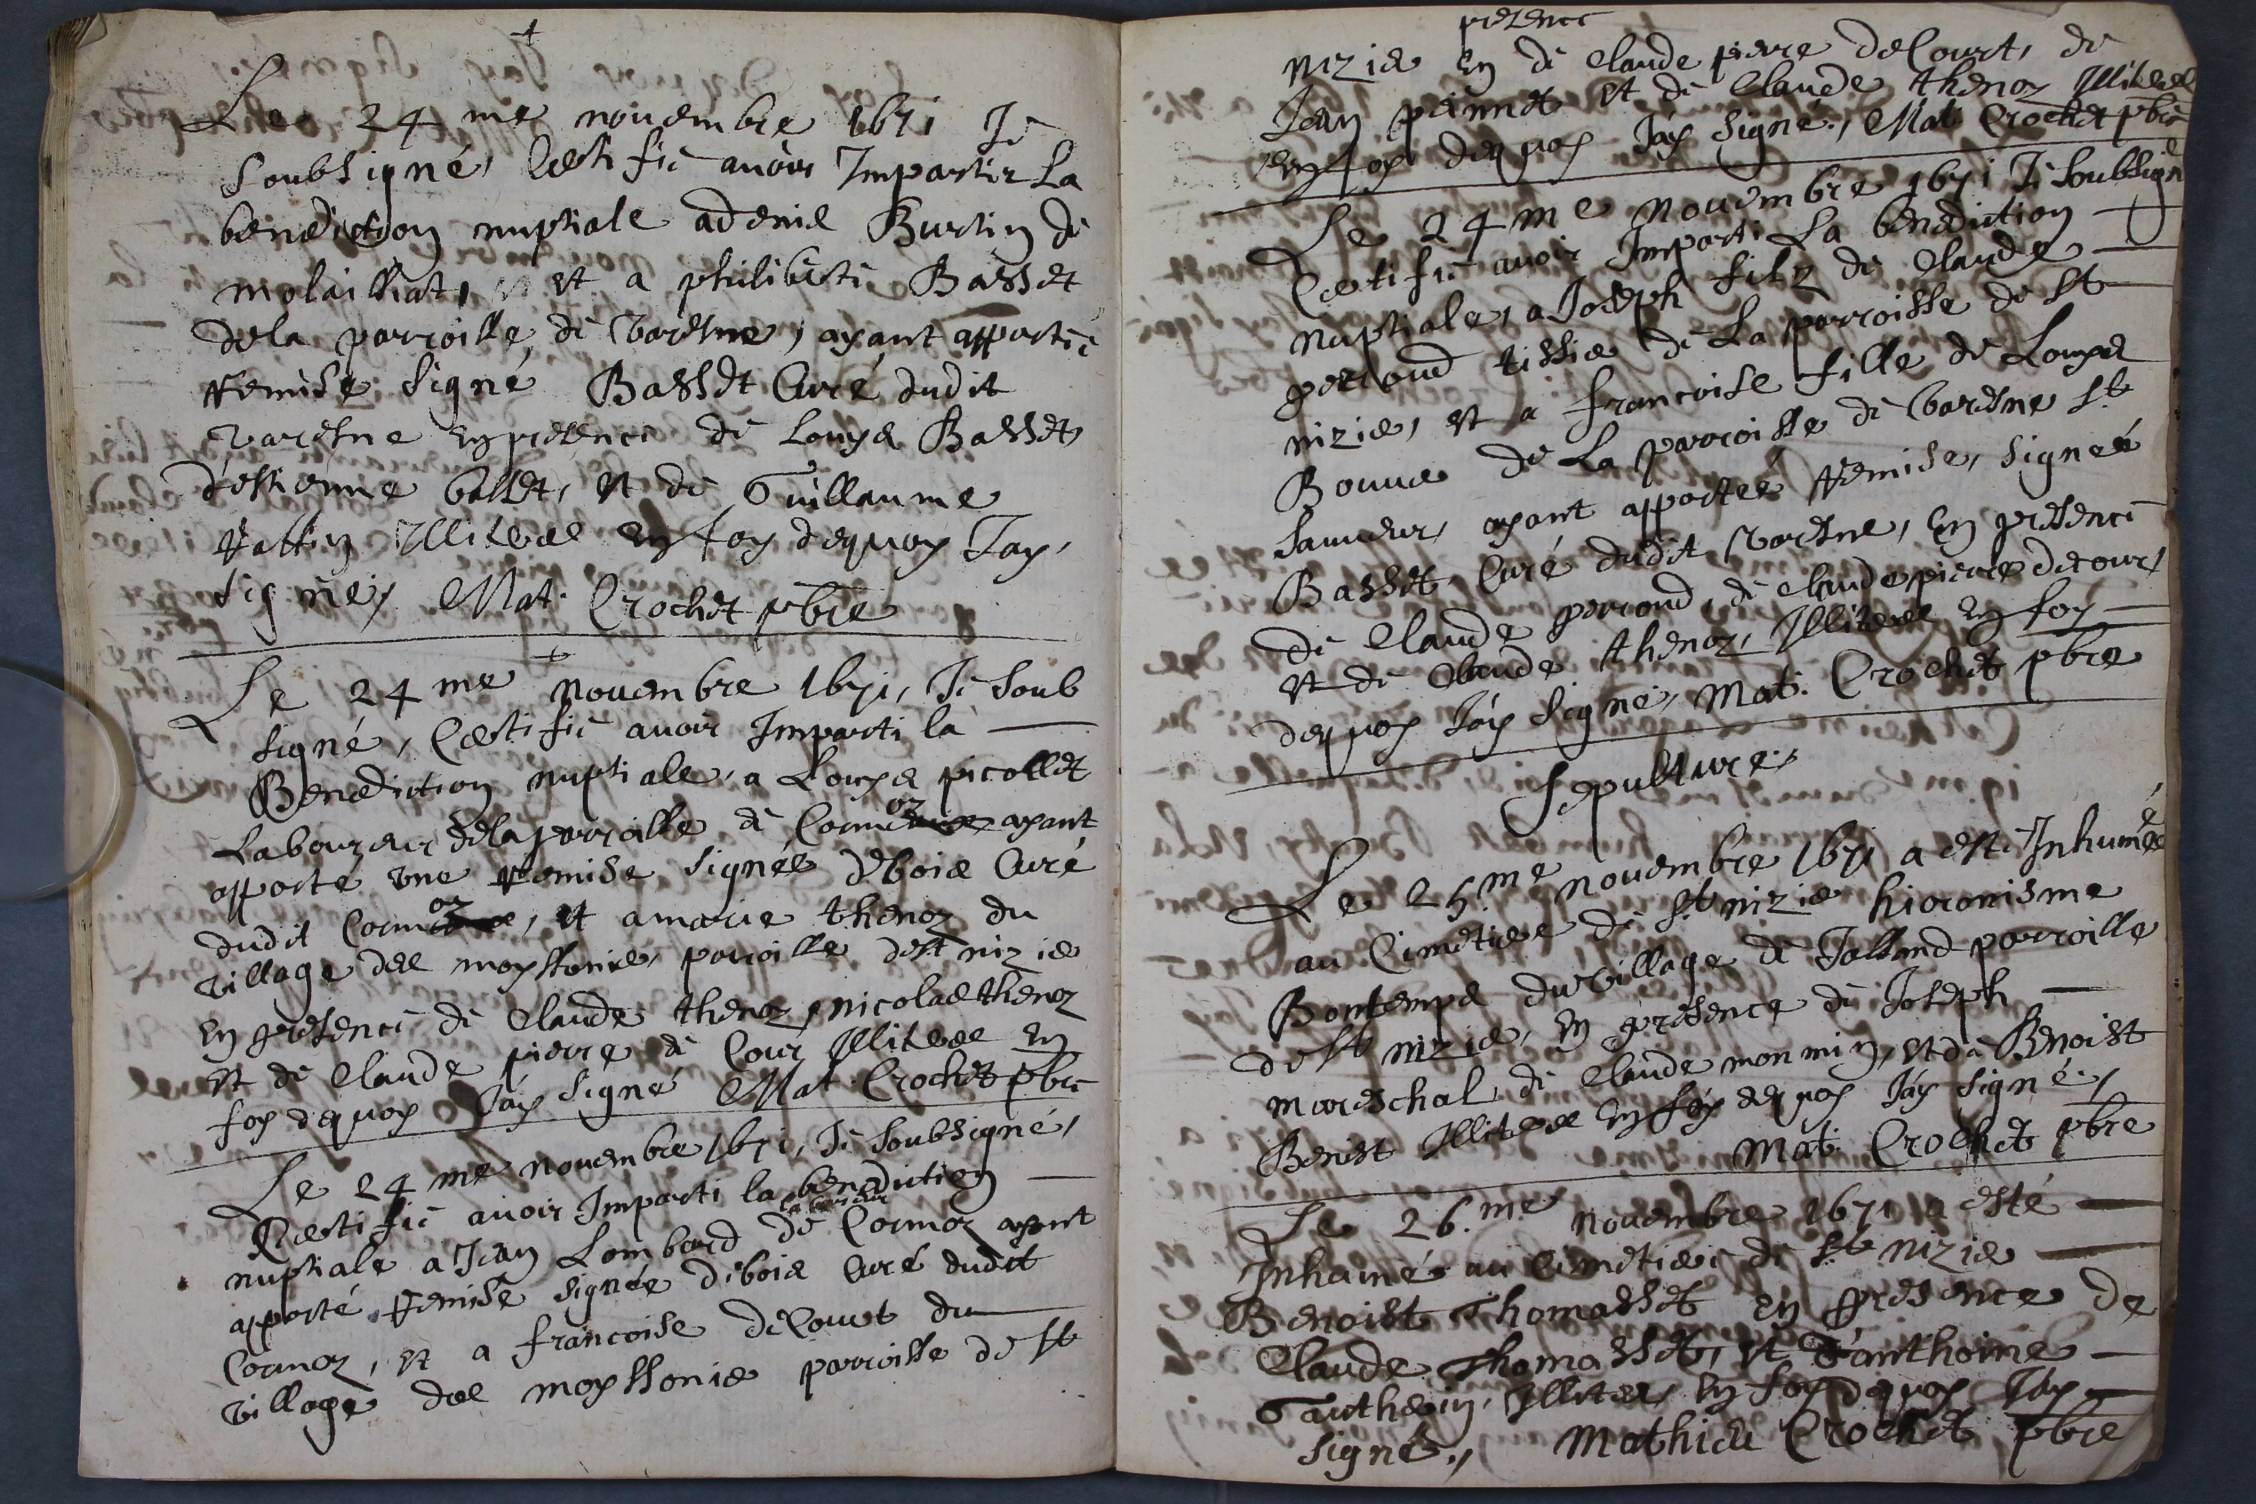 Le 24 me nouembre 1671 Je
soubsigné, Certifie auoir Impartir La
benediction nuptiale a denis Burtin de
molailliat, et a philiberte Basset
dela parroisse de Varesne, ayant apporteé
Remise signé Basset Curé dudit
Varesne en presence de Louys Basset,
d'estienne basset, et de Guillaume
Rattin Illiteres en foy dequoy Jay
signé, Mat. Crochet pbre
Le 24 me nouembre 1671, Je soub
signé, Certifie auoir Imparti la
Benediction nuptiale, a Louys picollet
Laboureur dela parroisse de Cormoz ayant
apporté vne Remise signeé debois Curé
dudit Cormoz, et a marie thenoz du
village des moyssonier, parroisse de st nizier
en presence de Claude thenoz, nicolas thenoz
et de Claude pierre de Cour Illiteres en
foy dequoy Jay signé Mat Crochet pbre
Le 24 me nouembre 1671, Je soubsigné,
Certifie auoir Imparti la benediction
laboureur
nuptiale a Jean Lombard de Cormoz ayant
apporté Remise signeé debois Curé dudit
Cormoz, et a francoise deCourt du
village des moyssonier parroisse de st
presence
nizier en de Claude pierre deCourt, de
Jean perinnet et de Claude thenoz Illiteres
en foy dequoy Jay signé, Mat. Crochet pbre
Le 24 me nouembre 1671 Je soubsigné
Certifie auoir Imparti La benediction
nuptiale, a Joseph filz de Claude
perroud tissier de La parroisse de st
nizier, et a francoise fille de Louys
Bouuer de La parroisse de Varesne st
sauueur, ayant apporteé Remise, signeé
Basset Curé dudit Varesne, en presence
de Claude perroud, de Claude pierre decour,
et de Claude thenoz, Illiteres en foy
dequoy Jay signé, Mat. Crochet pbre
Sepulture,
Le 25.me nouembre 1671 a esté Inhumé
au Cimetiere de st nizier hieronisme
Bontemps du village de Jassand parroisse
de st nizier, en presence de Joseph
mareschal, de Claude monmin, et de Benoist
Benist Illiteres en foy dequoy Jay signé,
Mat. Crochet pbre
Le 26.me nouembre 1671 a esté
Inhumé au Cimetiere de st nizier
Benoist Thomasset en presence de
Claude Thomasset, et d'anthoine
Gautheuin, Illiteres, en foy dequoy Jay
signé, Mathieu Crochet pbre